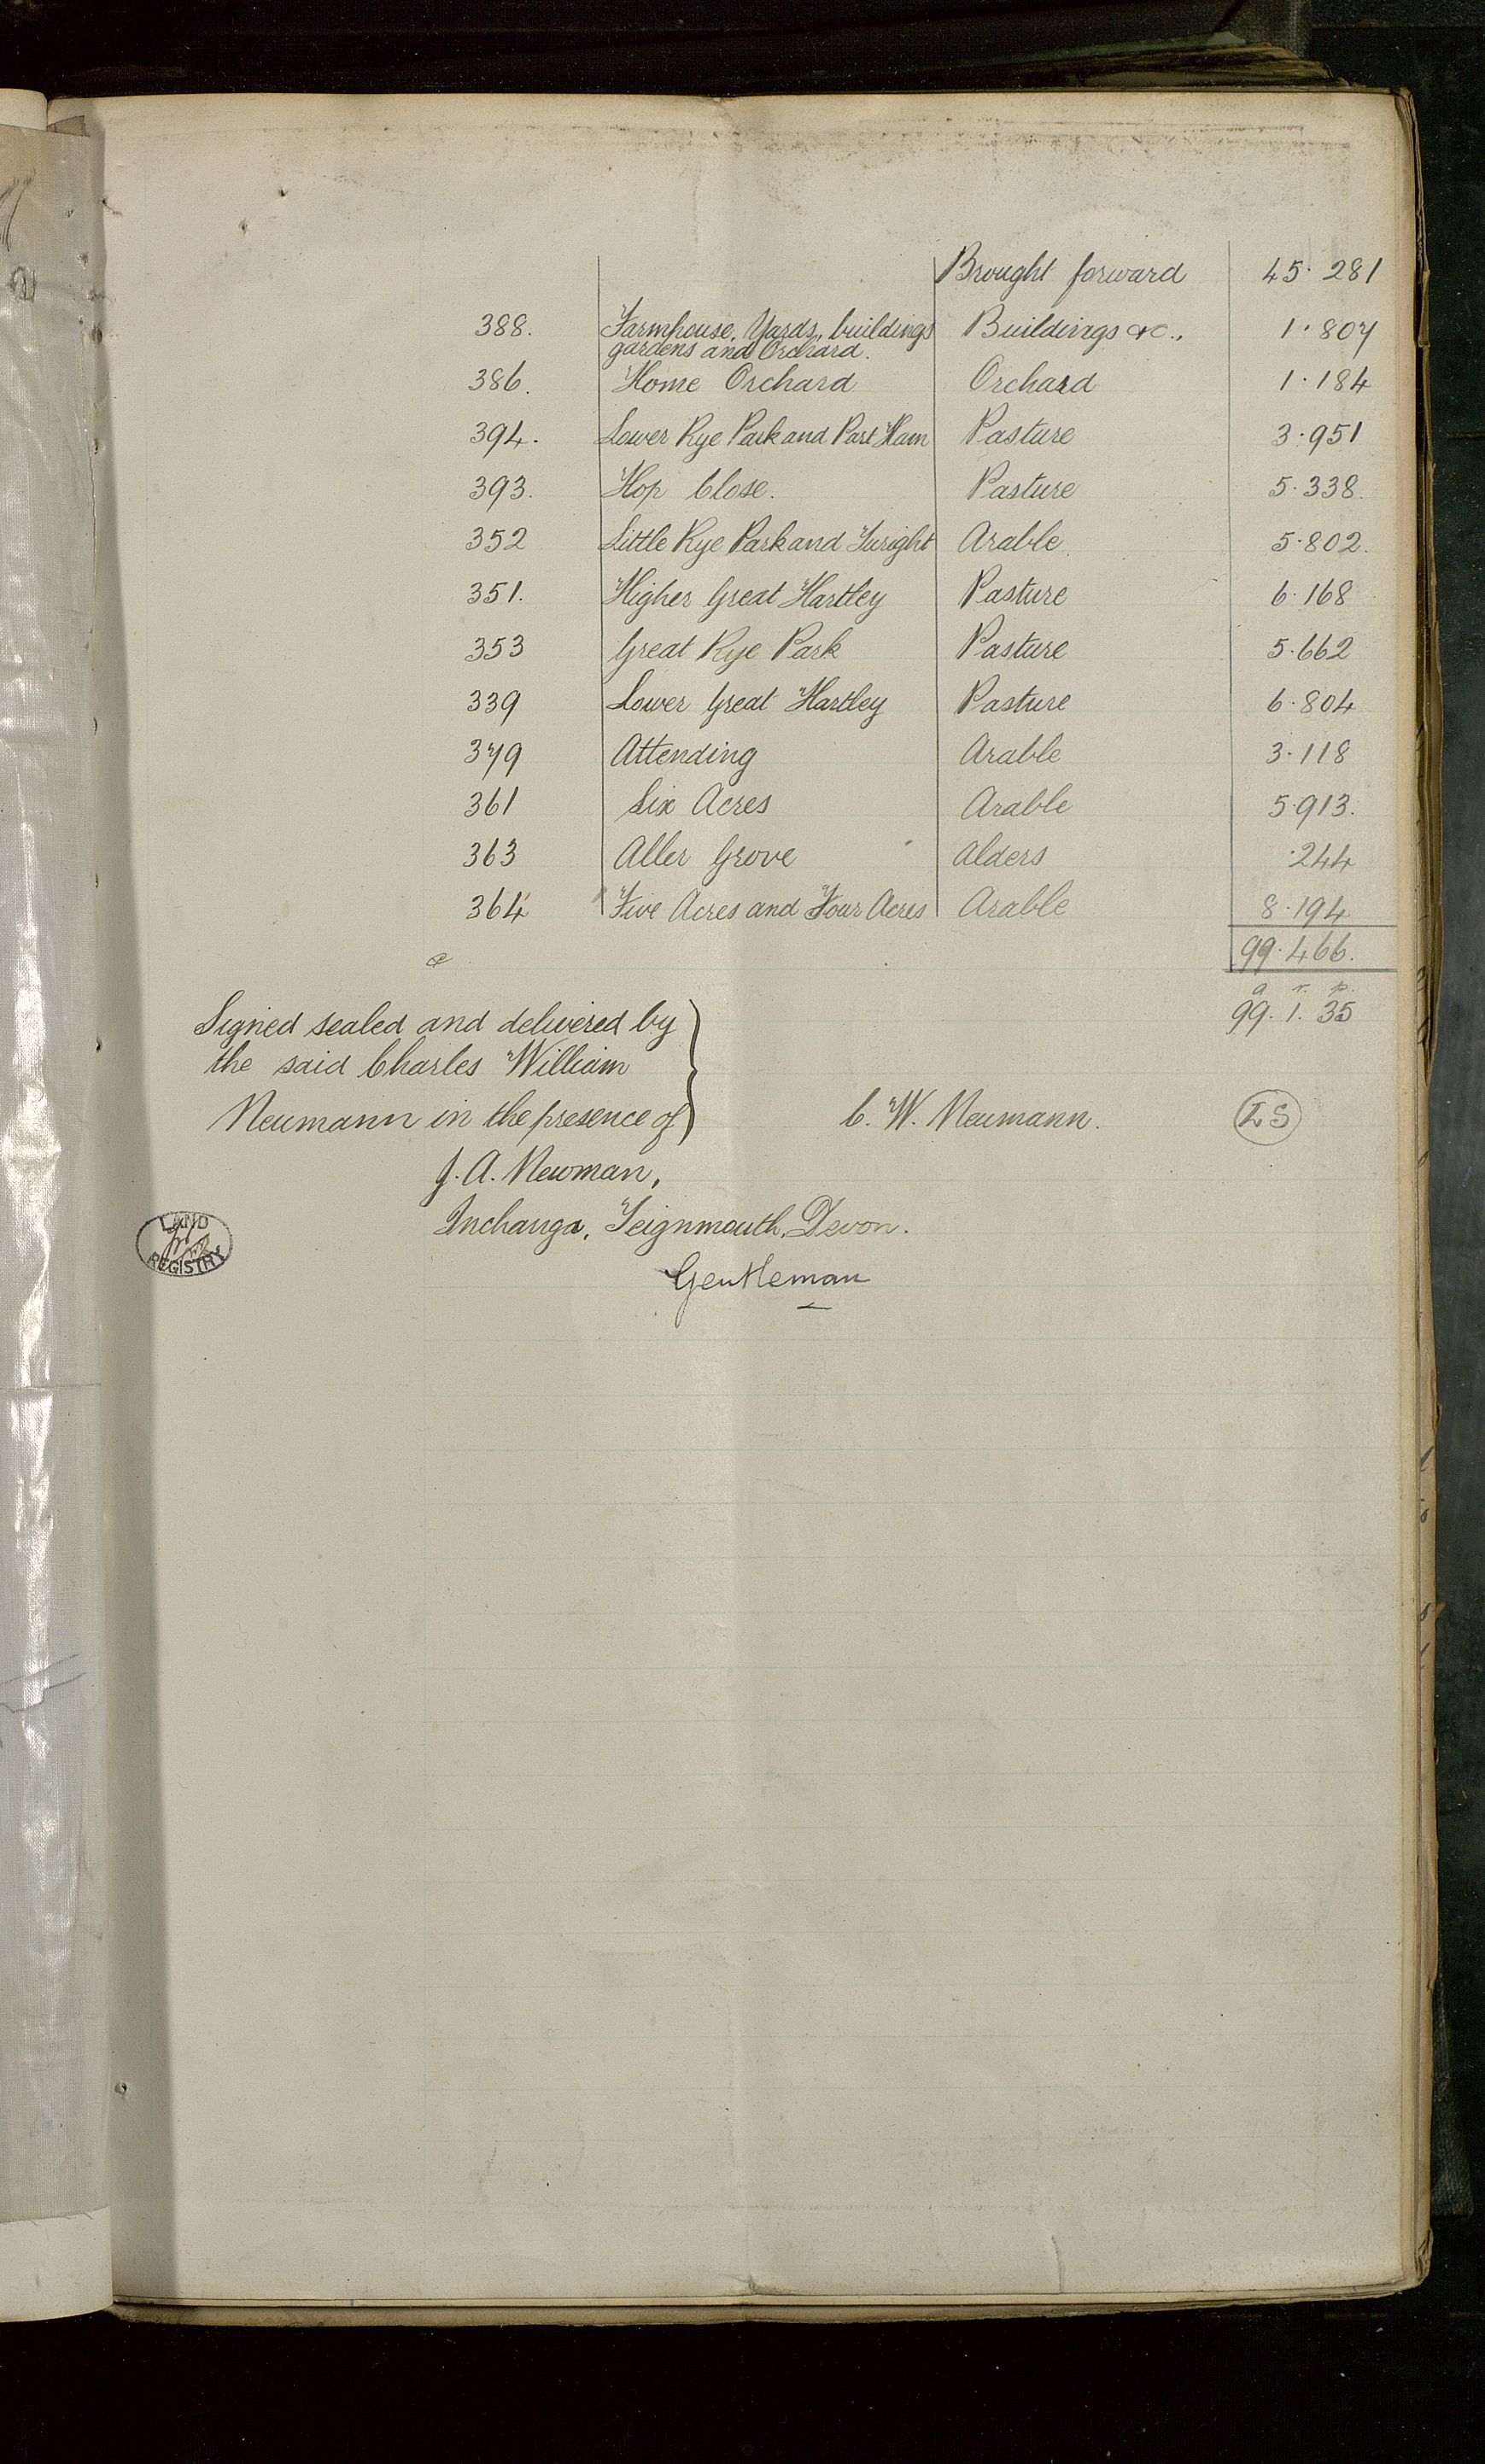 Brought forward 45·281
388. Farmhouse, Yards, buildings Buildings &c., 1·807
gardens and Orchard.
386. Home Orchard Orchard 1·184
394. Lower Rye Park and Part Ham Pasture 3·951
393. Hop Close. Pasture 5·338.
352 Little Rye Park and Arable 5·802.
351. Higher Great Hartley Pasture 6·168
353 Great Rye Park Pasture 5·662
339 Lower Great Hartley Pasture 6·804
379 Attending Arable 3·118
361 Six Acres Arable 5·913.
363 Aller Grove Alders ·244
364 Five Acres and Four Acres Arable 8·194
99·466.
a r. p.
99. 1. 35
Signed sealed and delivered by
the said Charles William
Neumann in the presence of C. W. Neumann. LS
J. A. Newman,
Inchanga, Teignmouth, Devon.
Gentleman
LAND
REGISTRY